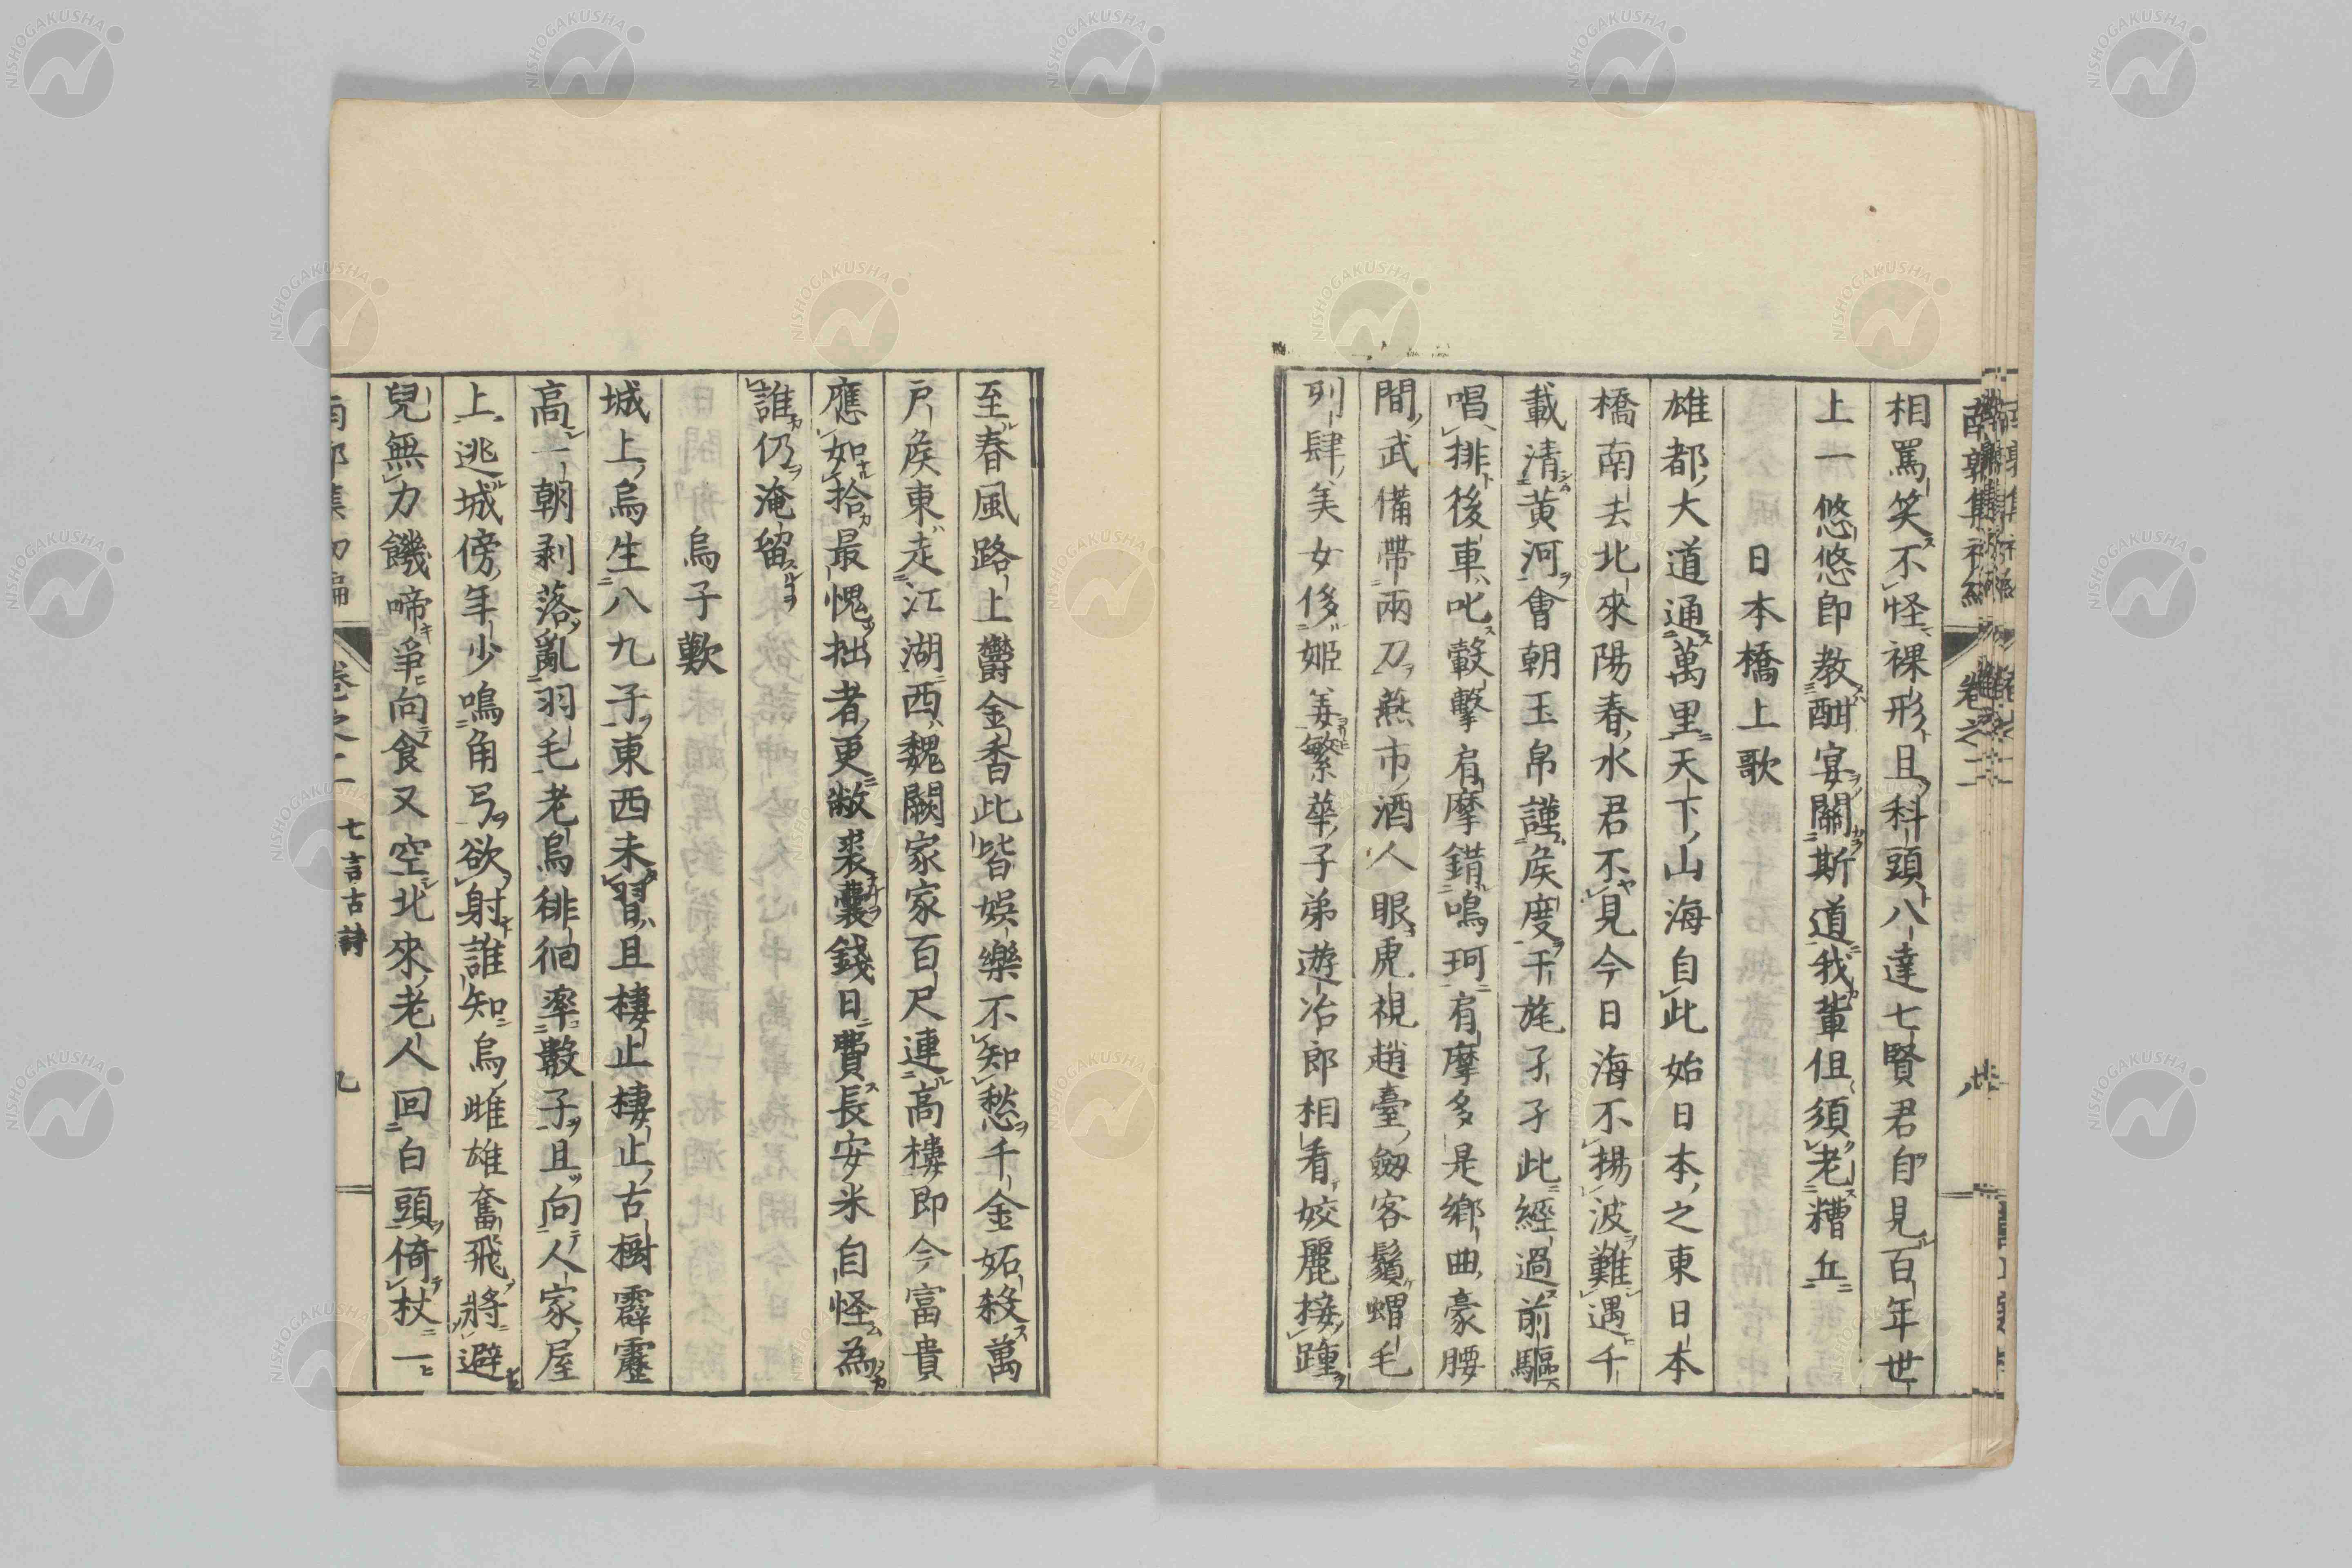 相罵笑不怪裸形且科頭八達七賢君自見百年世
上一悠悠即教酣宴關斯道我輩但須老糟丘
日本橋上歌
雄都大道通萬里天下山海自此始日本之東日本
橋南去北來陽春水君不見今日海不揚波難遇千
載清黃河會朝玉帛謹侯度干旄孑孑此經過前驅
唱排後車叱轂擊肩摩錯鳴珂肩摩多是鄉曲豪腰
間武備帶兩刀燕市酒人眼虎視趙臺劔客鬚蝟毛
列肆美女侈姬姜繁華子弟遊冶郎相看姣麗接踵
至春風路上鬱金香此皆娛樂不知愁千金妬殺萬
戶侯東走江湖西魏闕家家百尺連高樓即今富貴
應如拾最愧拙者更敝裘囊錢日費長安米自怪為
誰仍淹留
烏子歎
城上烏生八九子東西未習且棲止棲止古樹霹靂
高一朝剥落亂羽毛老烏徘徊率鷇子且向人家屋
上逃城傍年少鳴角弓欲射誰知烏雌雄奮飛將避
兒無力饑啼爭向食又空北來老人回白頭倚杖一
卷之二
七言古詩
九
NISHOGAKUSHA